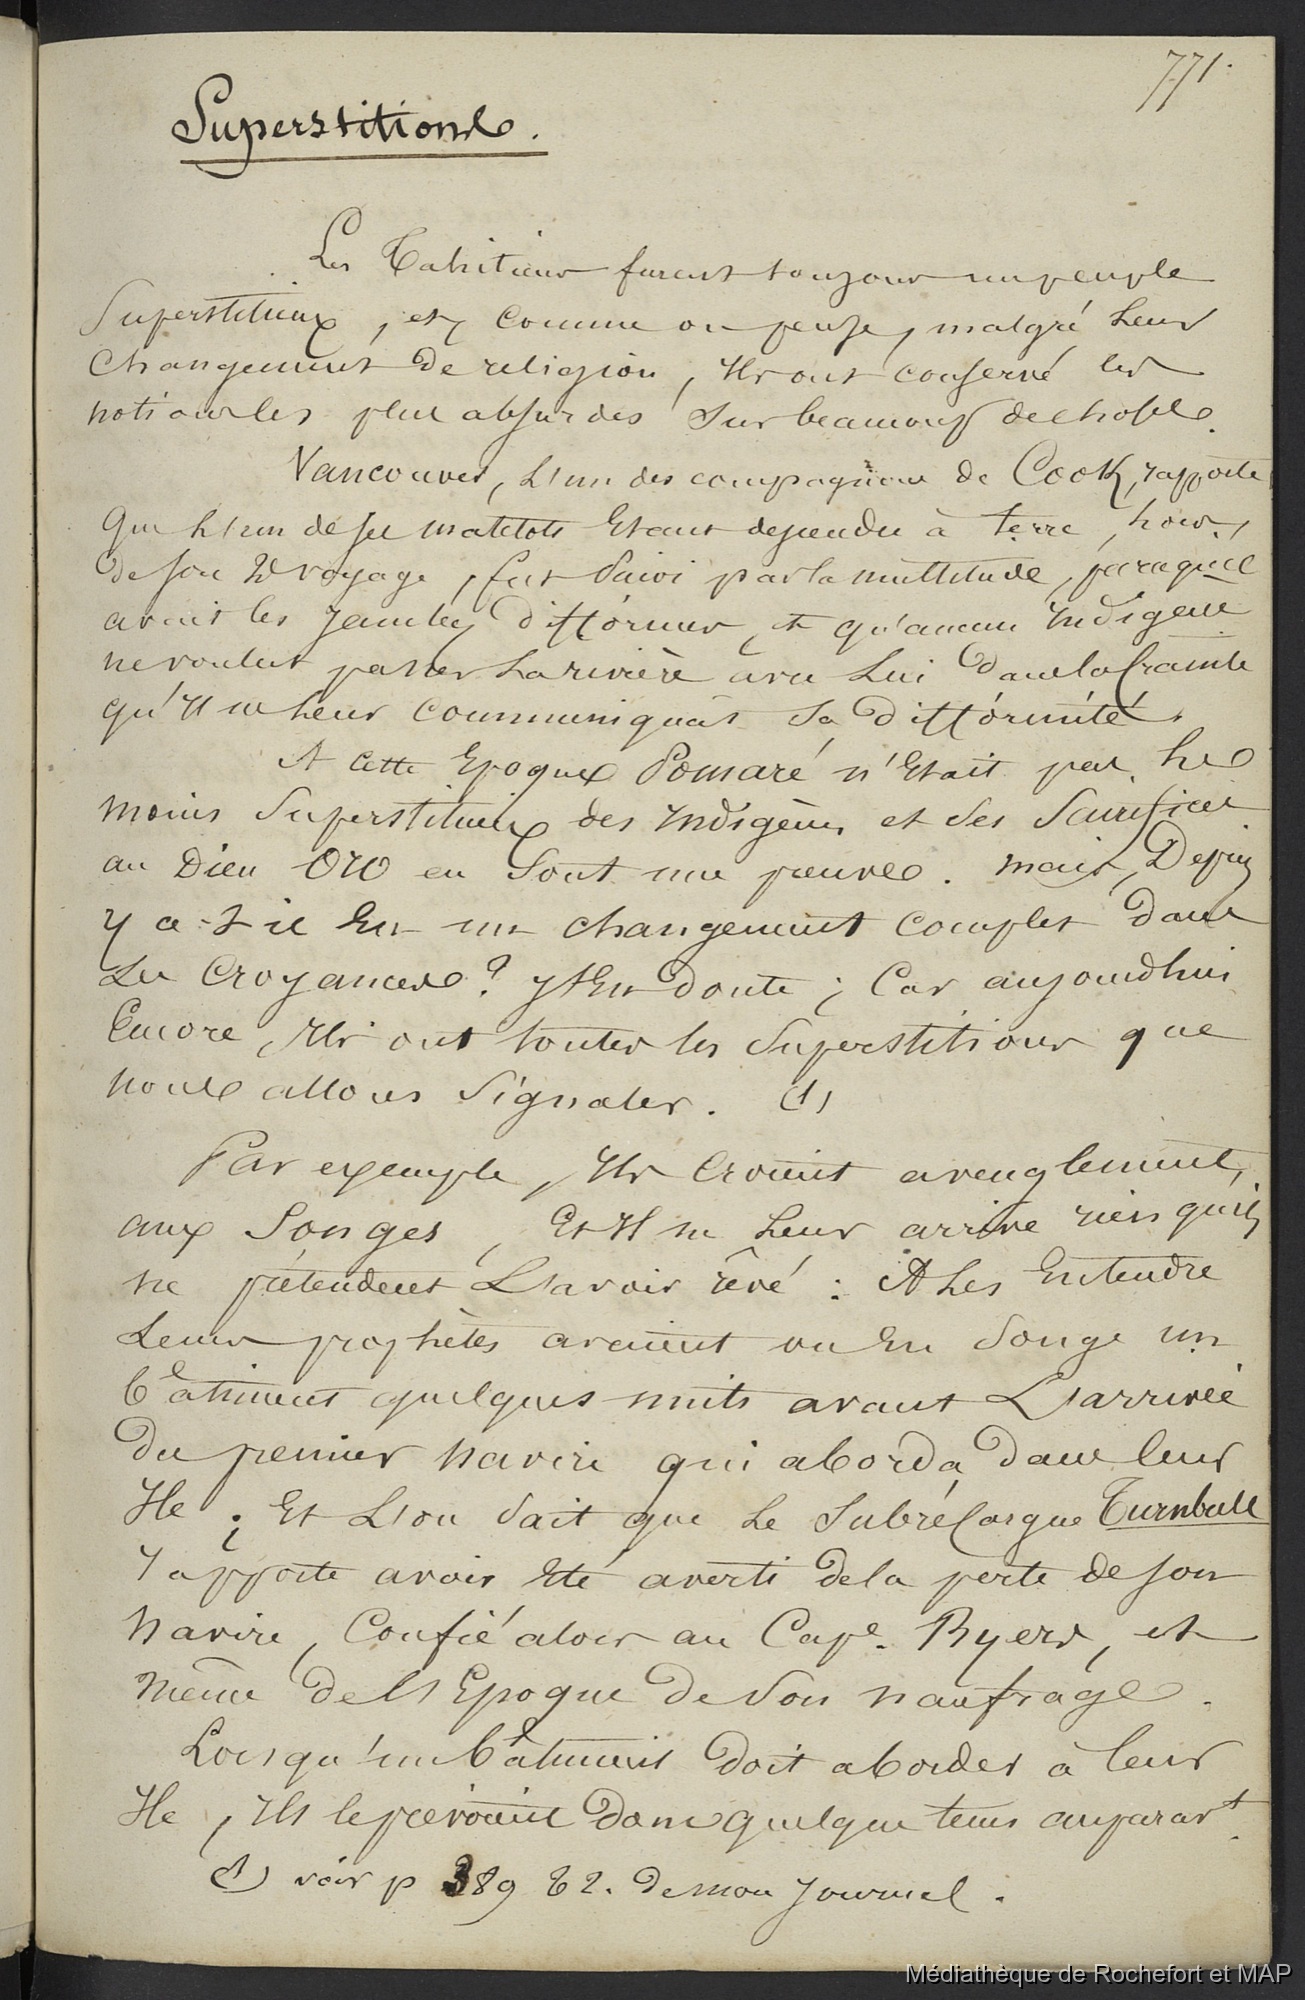 771.
Superstitions.
Les Tahitiens furent toujours un peuple
Superstitieux, et, comme on pense, malgré Leur
Changement de religion, Ils ont conservé les
notions les plus absurdes Sur beaucoup de choses.
Vancouver, L'un des compagnons de Cook, rapporte
Que L'un de ses matelots Etant descendu à terre, lors,
de son 2d voyage, fut Suivi par la multitude, parcequ'il
avait les jambes difformes, et qu'aucun Indigène
ne voulut passer La rivière avec Lui dans la Crainte
qu'Il ne Leur communiquât Sa difformité.
A cette Epoque Pomaré n'Etait pas Le
moins Superstitieux des Indigènes et Ses Sacrifices
au Dieu Oro en Sont une preuve. Mais, Depuis
y a-t-il Eu un changement complet dans
Les Croyances? J'En doute; Car aujourd'hui
Encore, Ils ont toutes les Superstitions que
nous allons Signaler. (1)
Par exemple, Ils Croient aveuglement,
aux Songes, Et Il ne Leur arrive rien qu'ils
ne prétendent L'avoir rêvé: A Les Entendre
Leurs prophètes avaient vu En Songe un
bâtiment quelques nuits avant L'arrivée
du premier navire qui aborda dans leur
Ile; Et L'on Sait que Le Subrécargue Turnbull
rapporte avoir Eté averti de la perte de son
navire, Confié alors au Cape. Byers, et
même de L'Epoque de Son naufrage.
Lorsqu'un bâtiment doit aborder à leur
Ile, Ils le prévoient dans quelque tems auparavt.
(1) voir p 389 T 2. de mon Journal.
Médiathèque de Rochefort et MAP